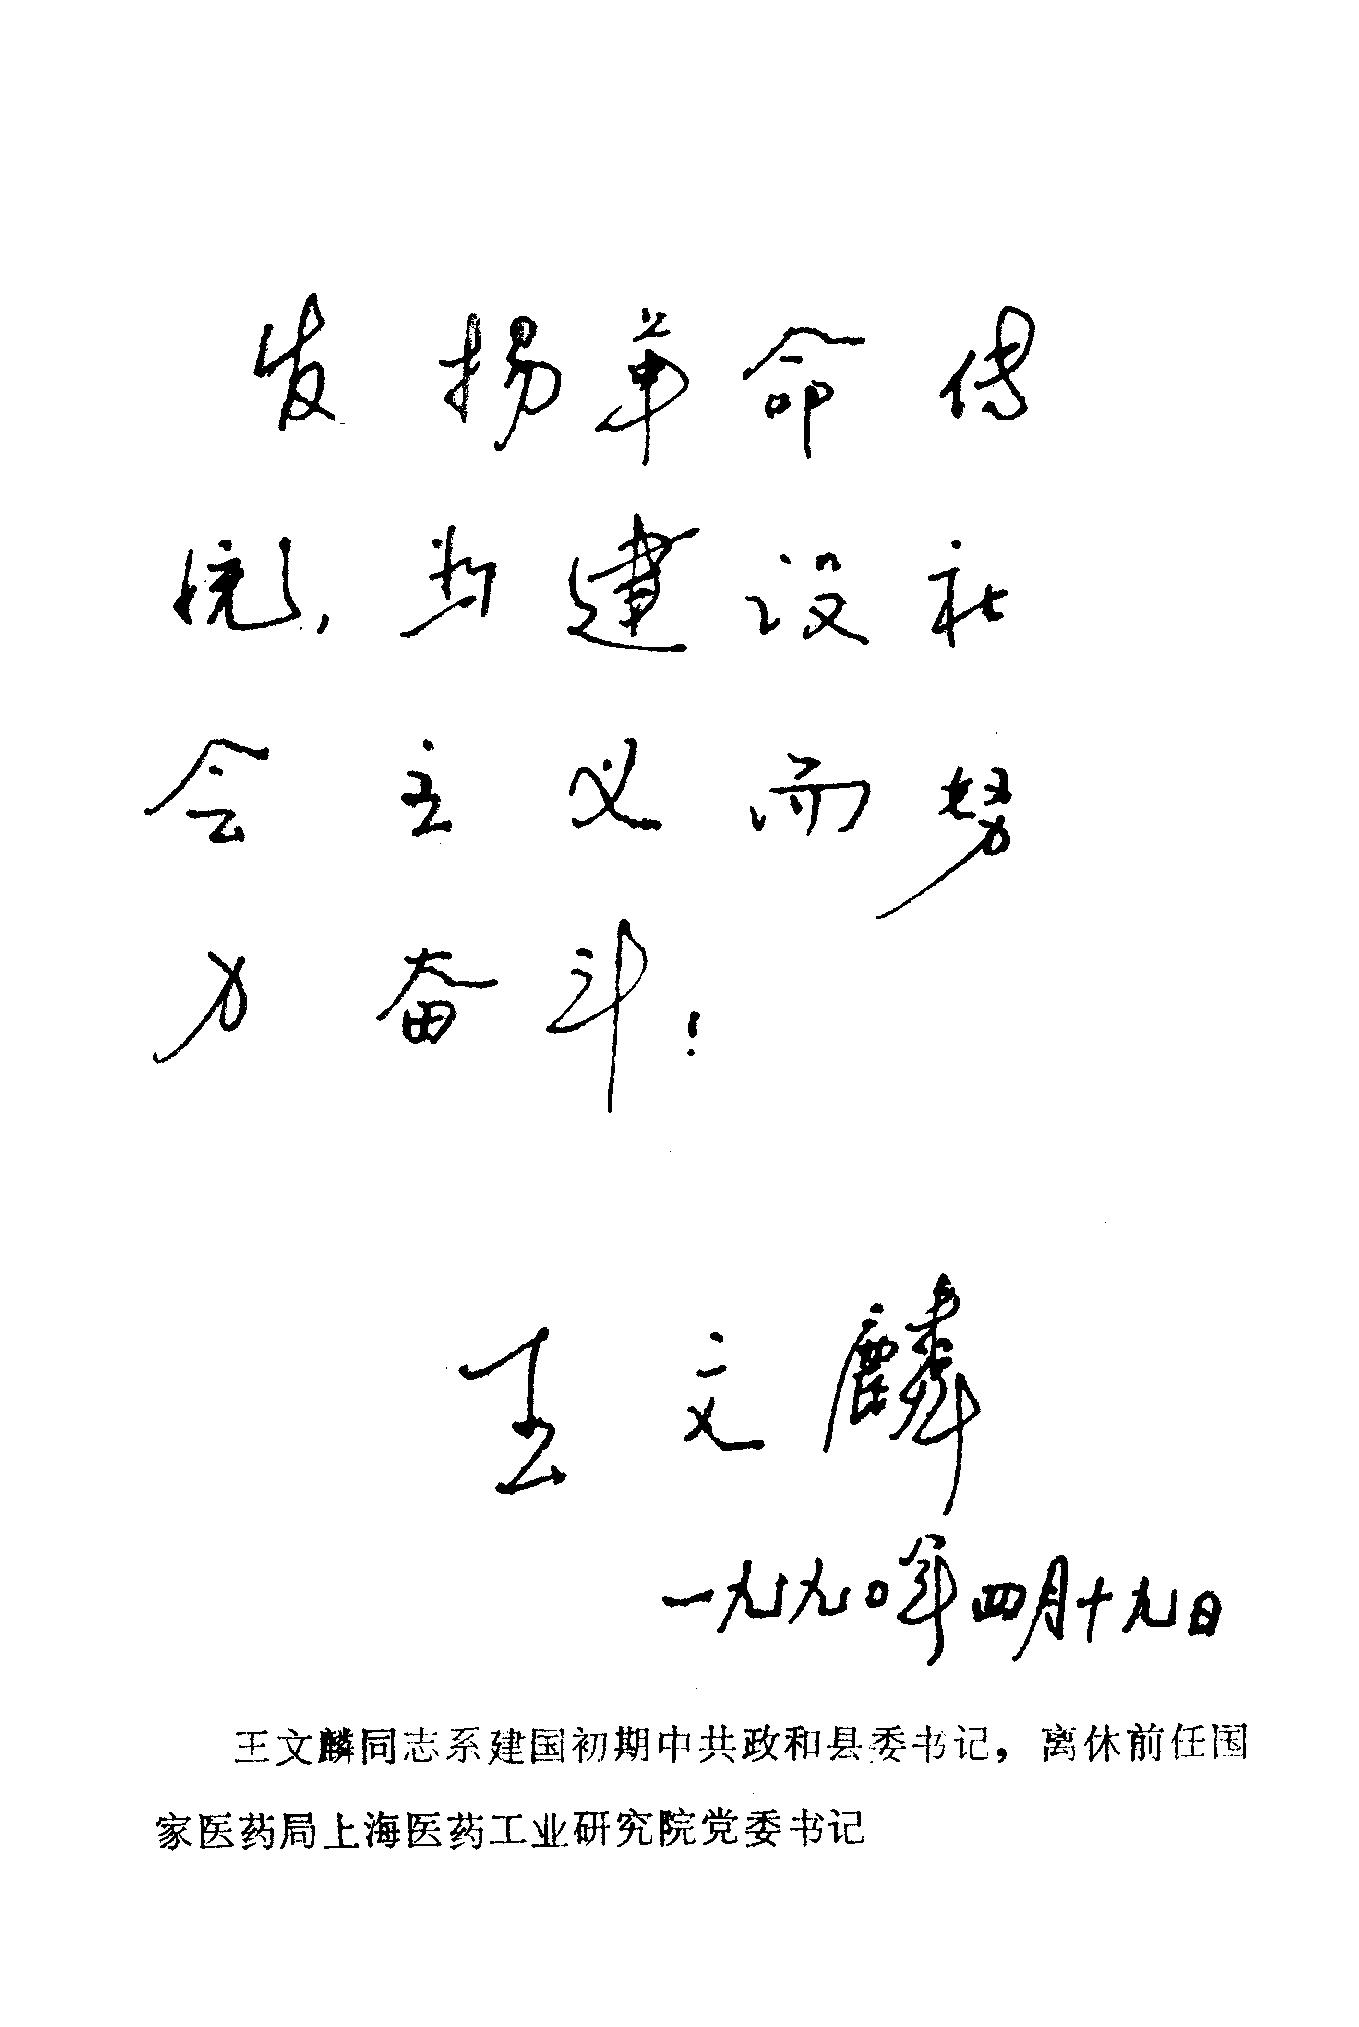 发扬革命传
统，为建设社
会主义而努
力奋斗！
王文麟
一九九〇年四月十九日
王文麟同志系建国初期中共政和县委书记，离休前任国
家医药局上海医药工业研究院党委书记